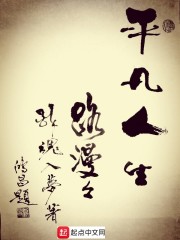 平凡人生
路漫々
魂入梦著
鸿昌题
起点中文网